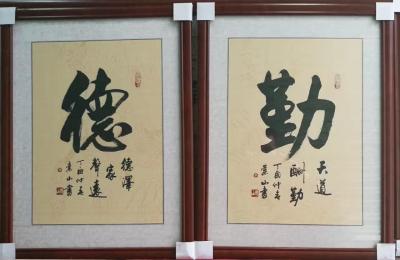 德
德澤
家
聲遠
丁酉仲春
山書
勤
天道
酬勤
丁酉仲春
山書